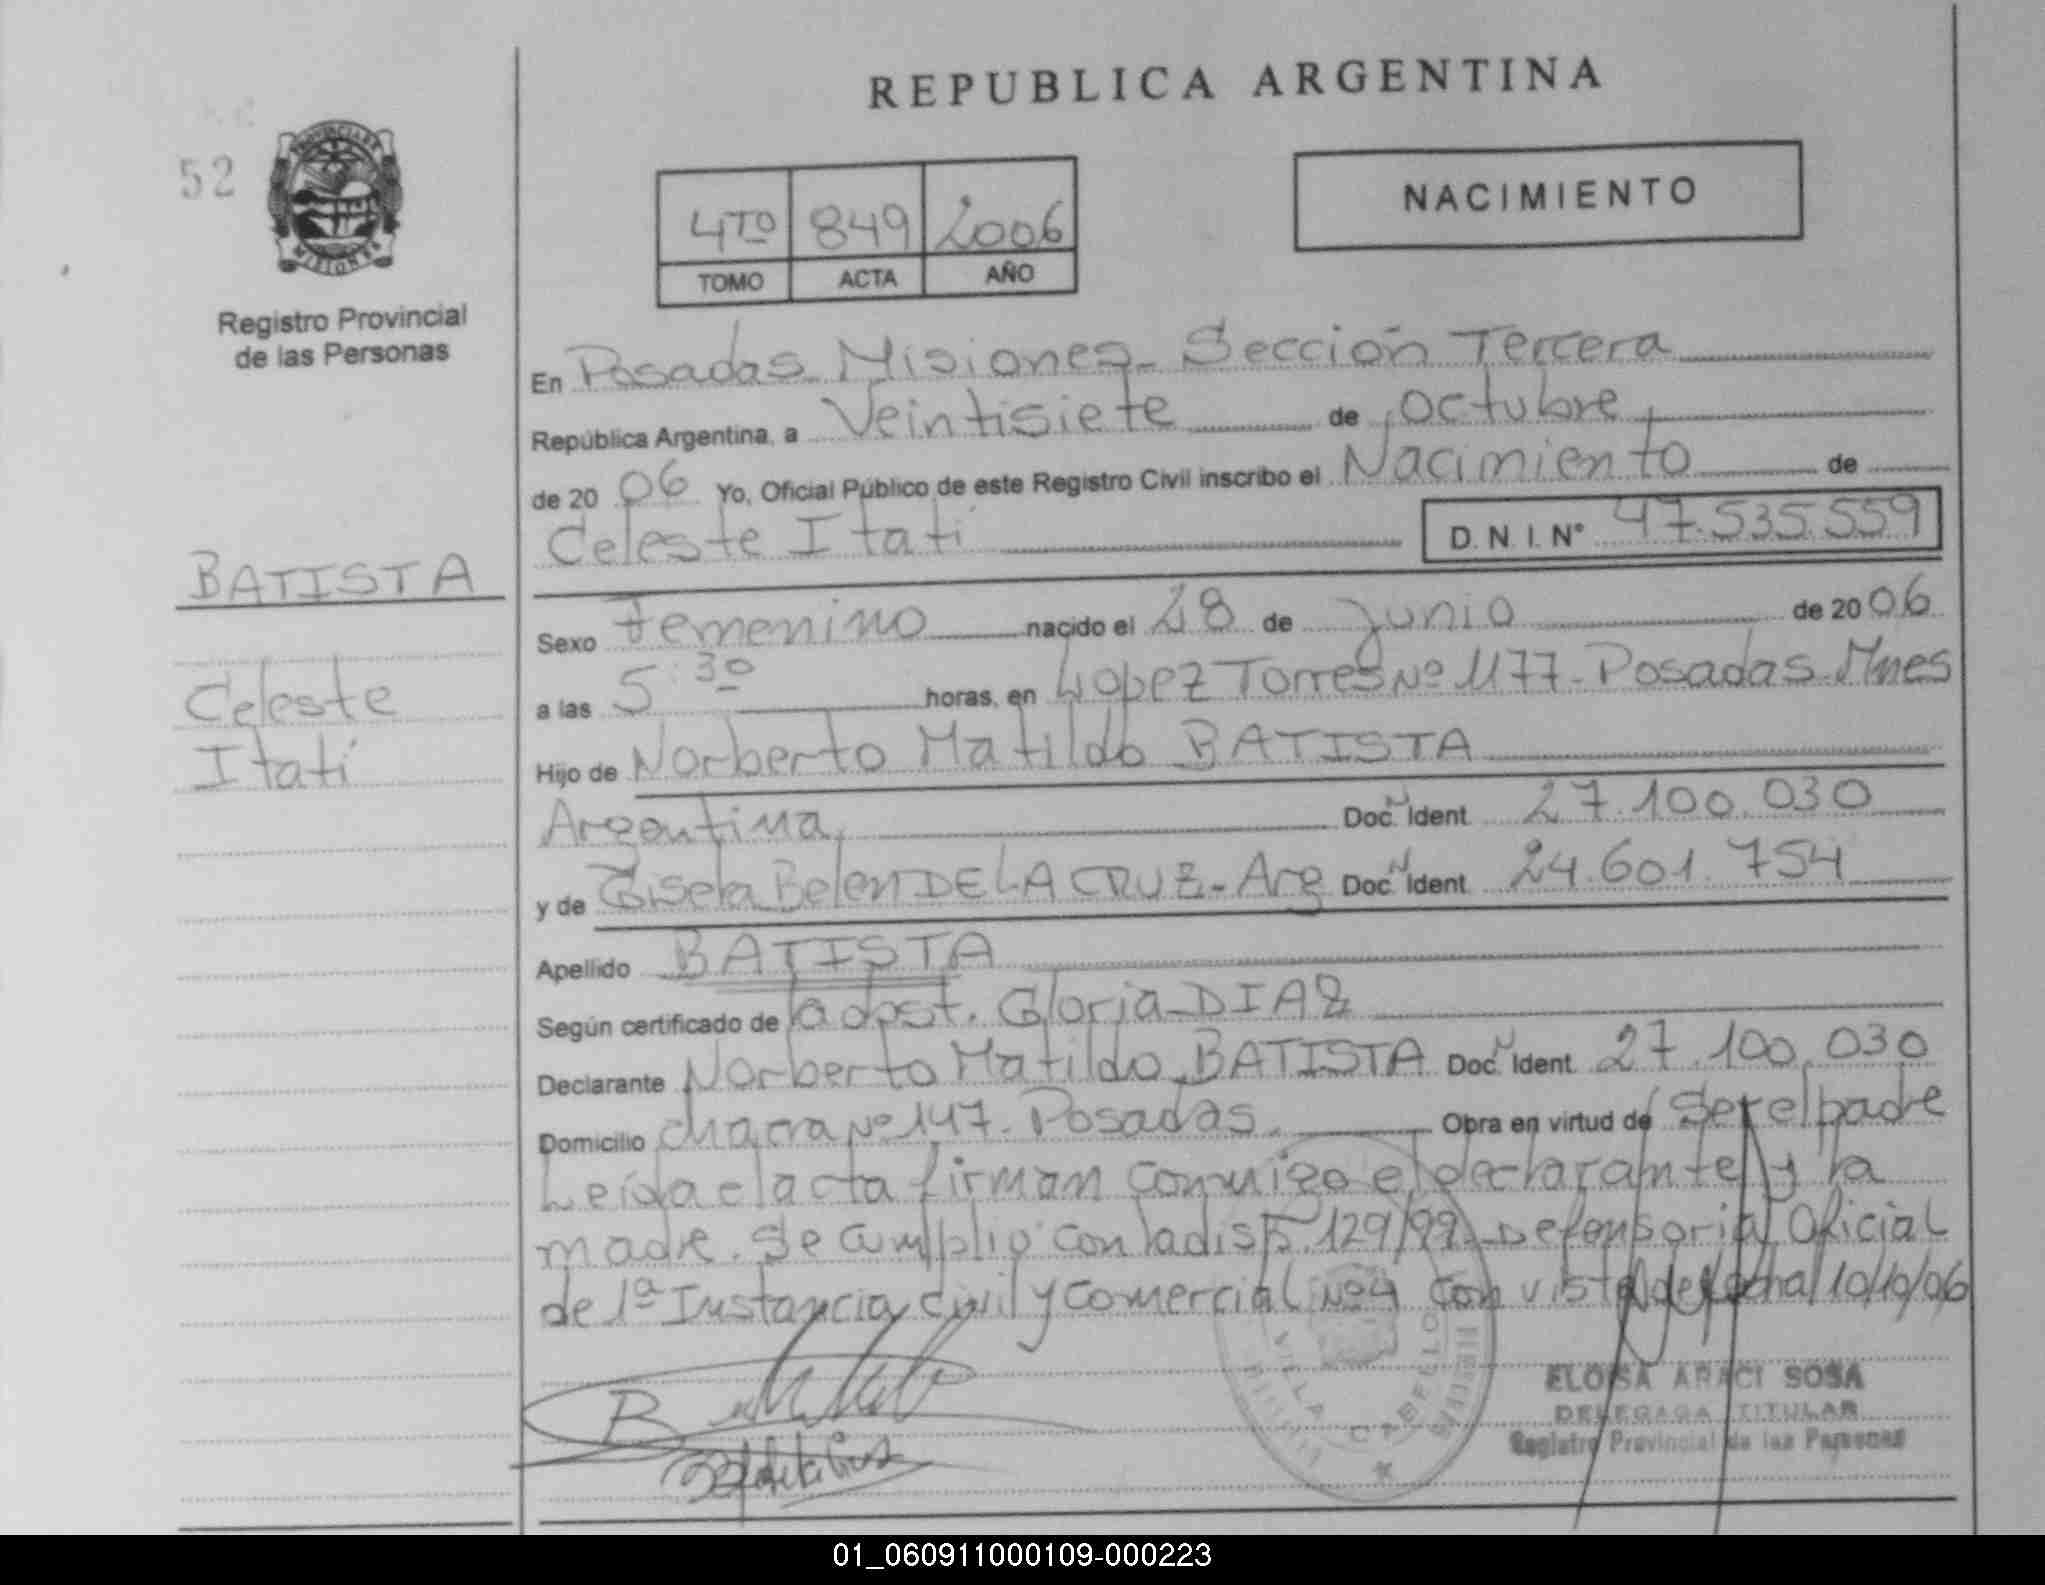 REPUBLICA ARGENTINA
52
PROVINCIA DE
MISIONES
Registro Provincial
de las Personas
4TO 849 2006
TOMO ACTA AÑO
NACIMIENTO
En Posadas Misiones- Sección Tercera
República Argentina, a Veintisiete de octubre,
de 20 06 Yo, Oficial Público de este Registro Civil inscribo el Nacimiento de
Celeste Itatí D.N.I. N° 47.535.559
BATISTA
Celeste
Itatí
Sexo Femenino nacido el 28 de junio de 20 06
a las 5:30 horas, en Lopez Torres Nº 1177- Posadas- Mnes
Hijo de Norberto Matildo BATISTA
Argentina, Doc. N Ident 27.100.030
y de Gisela Belen DE LA CRUZ- Arg Doc. N Ident 24.601.754
Apellido BATISTA
Según certificado de la obst. Gloria DIAZ
Declarante Norberto Matildo BATISTA Doc. N Ident 27.100.030
Domicilio chacra Nº 147- Posadas. Obra en virtud de Ser el padre
Leída el acta firman conmigo el declarante y la
madre. Se cumplió con la disp. 129/99- Defensoria Oficial
de 1ª Instancia civil y Comercial Nº 4 con vista de fecha 10/10/06
VILLA CABELLO
ELOISA ARACI SOSA
DELEGADA TITULAR
Registro Provincial de las Personas
01_060911000109-000223